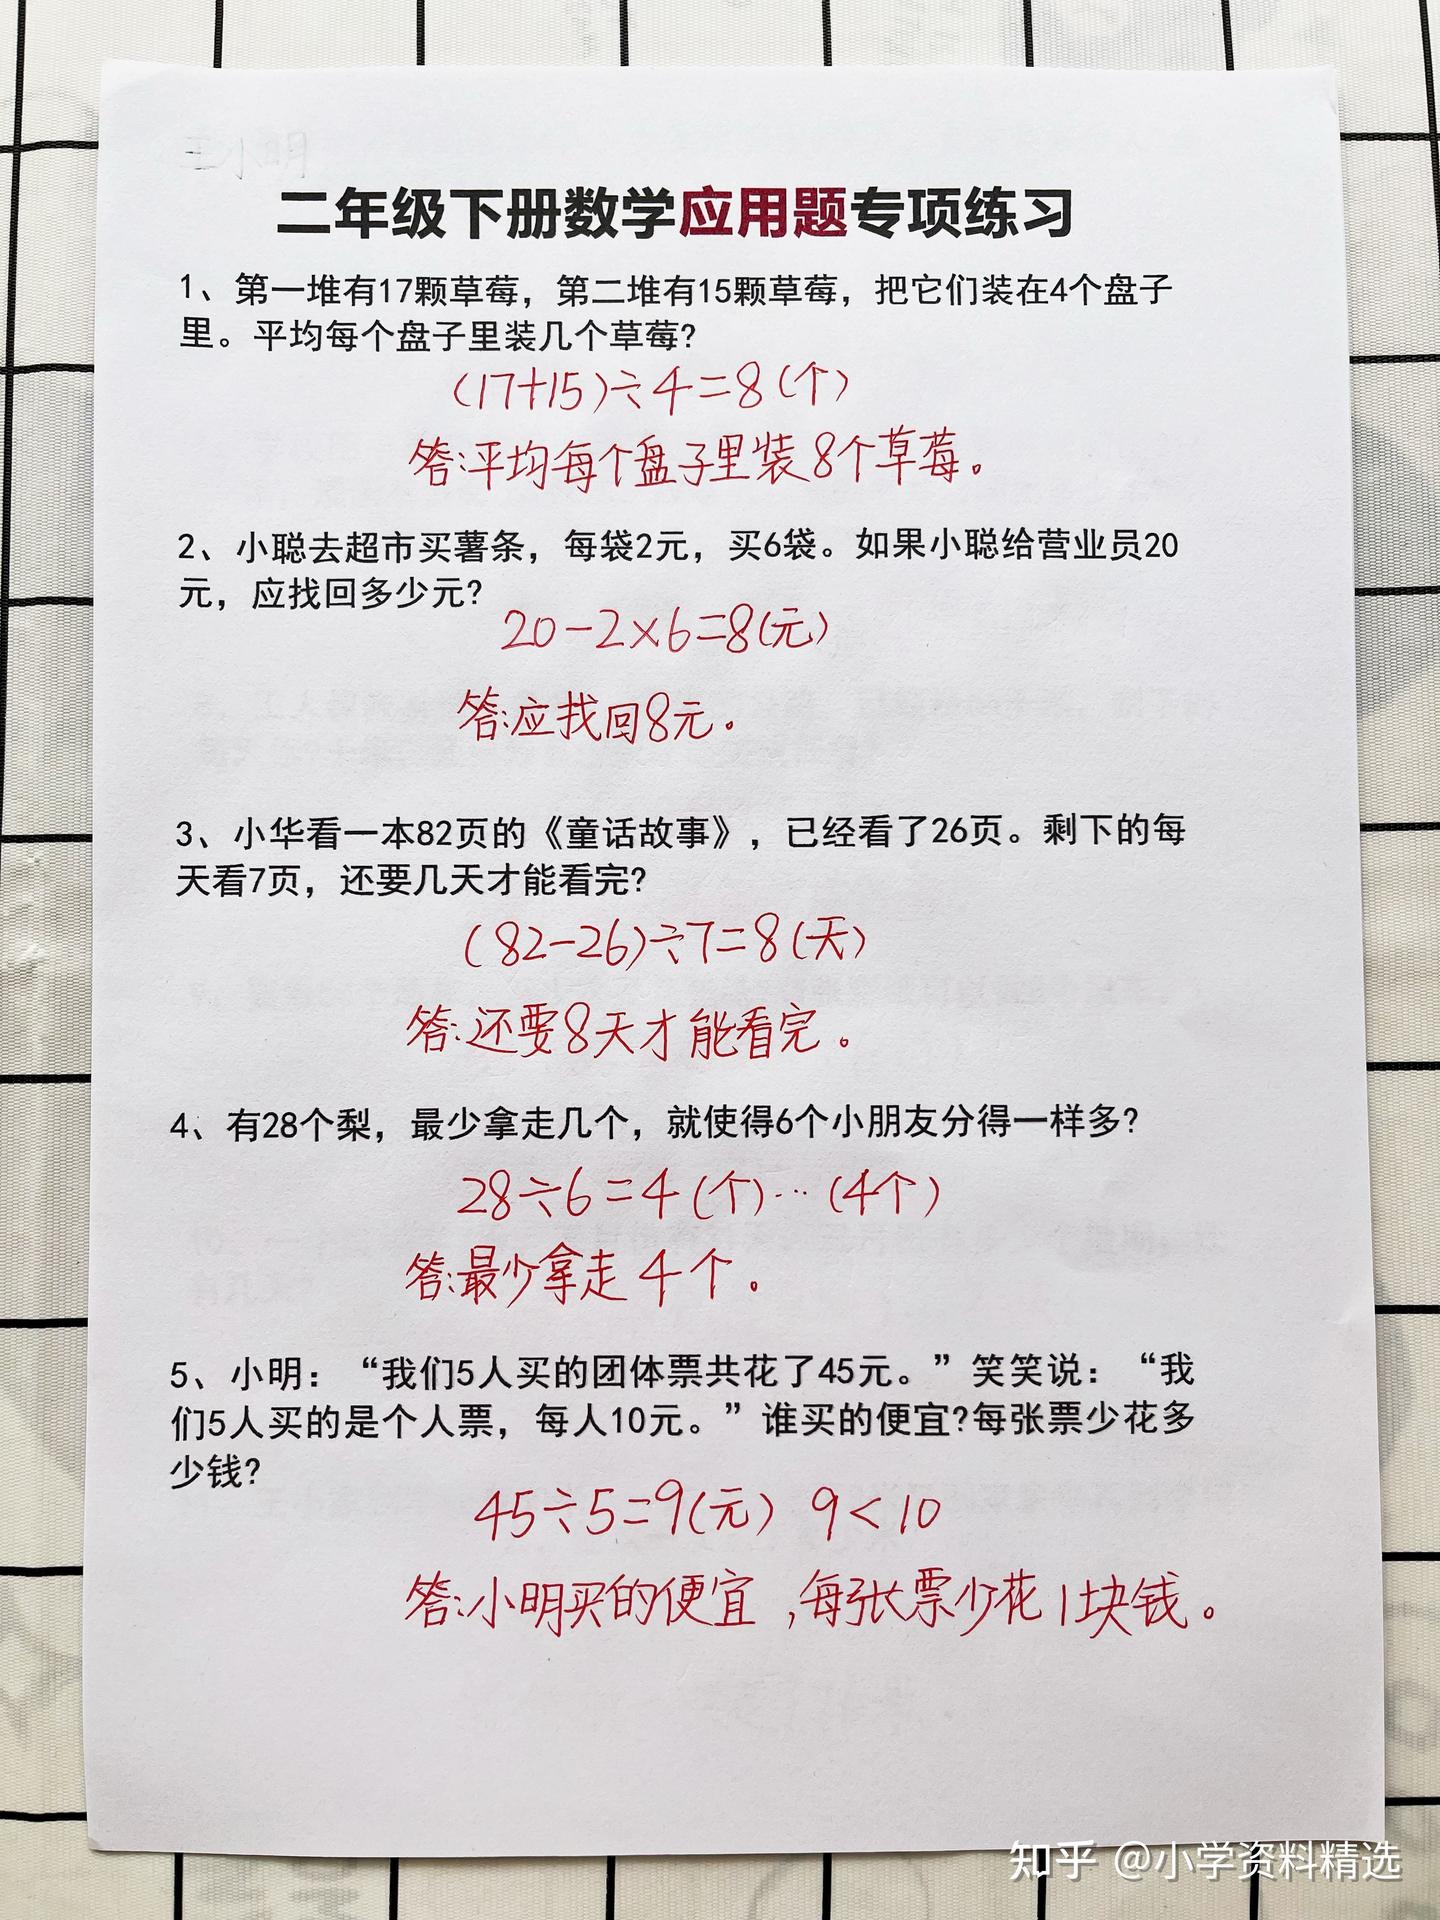 二年级下册数学应用题专项练习
1、第一堆有17颗草莓，第二堆有15颗草莓，把它们装在4个盘子
里。平均每个盘子里装几个草莓?
(17+15)÷4=8(个)
答:平均每个盘子里装8个草莓。
2、小聪去超市买薯条，每袋2元，买6袋。如果小聪给营业员20
元，应找回多少元?
20-2×6=8(元)
答:应找回8元。
3、小华看一本82页的《童话故事》，已经看了26页。剩下的每
天看7页，还要几天才能看完?
(82-26)÷7=8(天)
答:还要8天才能看完。
4、有28个梨，最少拿走几个，就使得6个小朋友分得一样多?
28÷6=4(个)…(4个)
答:最少拿走4个。
5、小明：“我们5人买的团体票共花了45元。”笑笑说：“我
们5人买的是个人票，每人10元。”谁买的便宜?每张票少花多
少钱?
45÷5=9(元) 9<10
答:小明买的便宜,每张票少花1块钱。
知乎 @小学资料精选